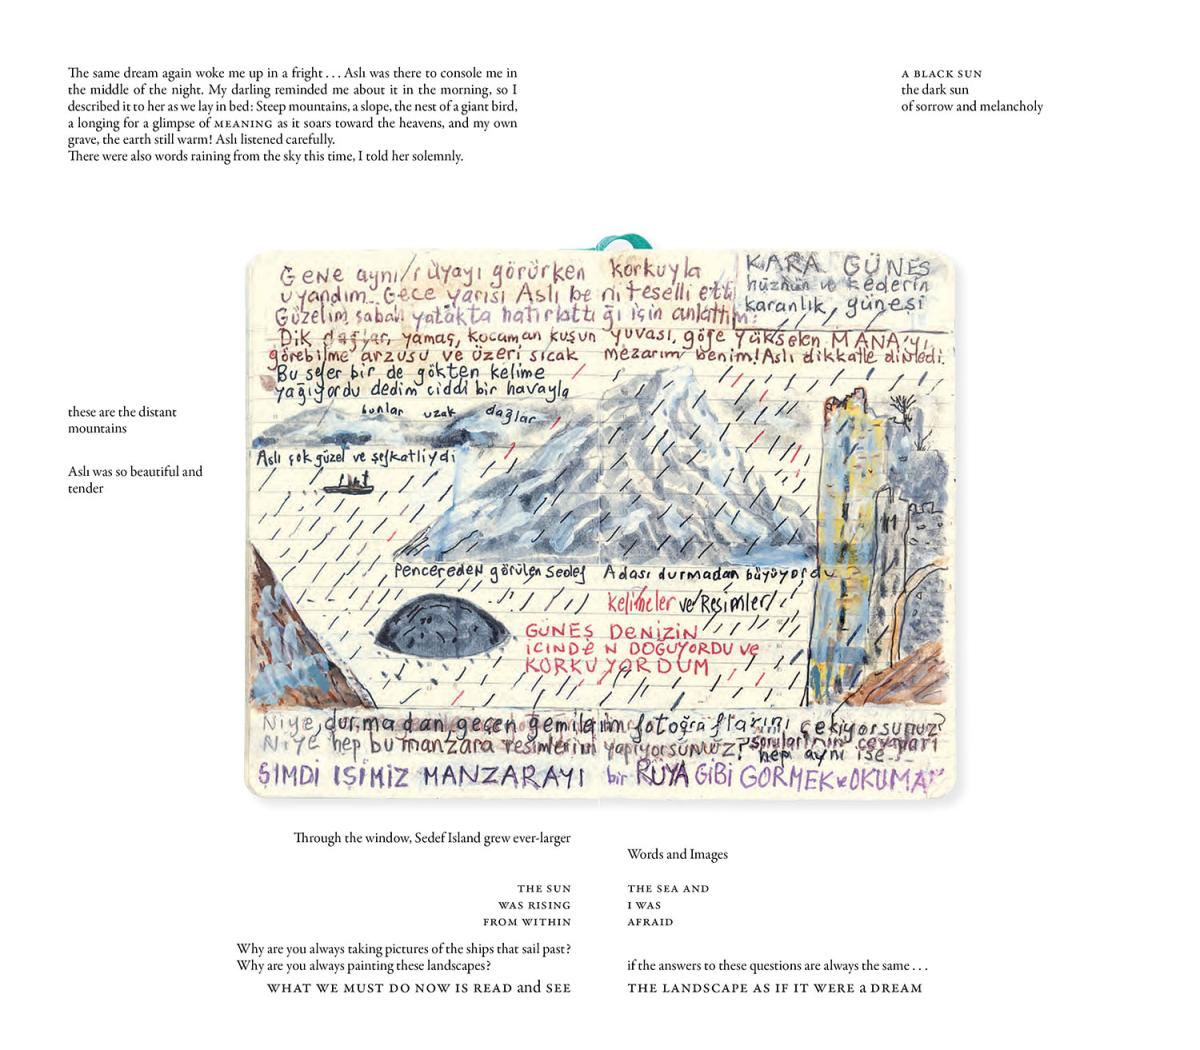 The same dream again woke me up in a fright . . . Aslı was there to console me in
the middle of the night. My darling reminded me about it in the morning, so I
described it to her as we lay in bed: Steep mountains, a slope, the nest of a giant bird,
a longing for a glimpse of MEANING as it soars toward the heavens, and my own
grave, the earth still warm! Aslı listened carefully.
There were also words raining from the sky this time, I told her solemnly.
A BLACK SUN
the dark sun
of sorrow and melancholy
Gene aynı rüyayı görürken korkuyla
uyandım.. Gece yarısı Aslı beni teselli etti
Güzelim sabah yatakta hatırlattığı için anlattım:
Dik dağlar, yamaç, kocaman kuşun yuvası, göğe yükselen MANA'yı
görebilme arzusu ve üzeri sıcak mezarım benim! Aslı dikkatle dinledi.
Bu sefer bir de gökten kelime
yağıyordu dedim ciddi bir havayla
KARA GÜNEŞ
hüznün ve kederin
karanlık güneşi
bunlar uzak dağlar
Aslı çok güzel ve şefkatliydi
these are the distant
mountains
Aslı was so beautiful and
tender
Pencereden görülen Sedef Adası durmadan büyüyordu
Kelimeler ve Resimler
GÜNEŞ DENİZİN
İÇİNDEN DOĞUYORDU ve
KORKUYORDUM
Niye, durmadan geçen gemilerin fotoğraflarını çekiyorsunuz?
Niye hep bu manzara resimlerini yapıyorsunuz? soruların cevapları
hep aynı ise...
ŞİMDİ İŞİMİZ MANZARAYI bir RÜYA GİBİ GÖRMEK ve OKUMAK
Through the window, Sedef Island grew ever-larger
Words and Images
THE SUN
WAS RISING
FROM WITHIN
THE SEA AND
I WAS
AFRAID
Why are you always taking pictures of the ships that sail past?
Why are you always painting these landscapes?
if the answers to these questions are always the same . . .
WHAT WE MUST DO NOW IS READ and SEE
THE LANDSCAPE AS IF IT WERE a DREAM